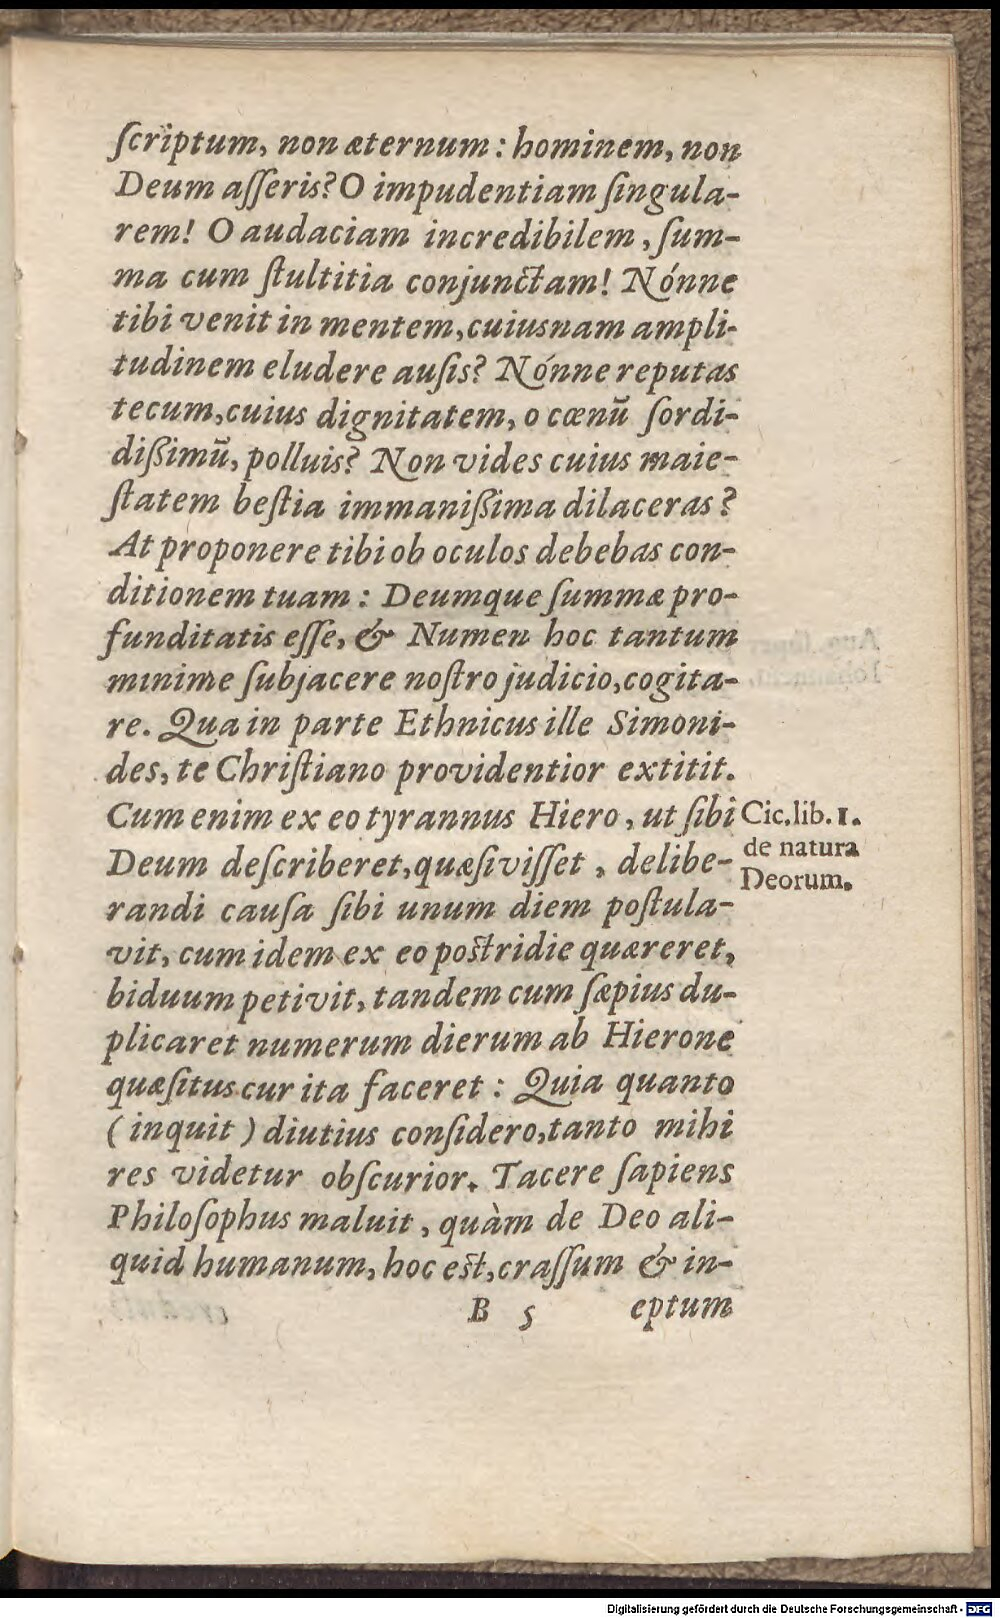 ſcriptum, non æternum: hominem, non
Deum aſſeris? O impudentiam ſingula-
rem! O audaciam incredibilem, ſum-
ma cum ſtultitia conjunctam! Nónne
tibi venit in mentem, cuiusnam ampli-
tudinem eludere auſis? Nónne reputas
tecum, cuius dignitatem, o cœnū ſordi-
dißimū, polluis? Non vides cuius maie-
ſtatem beſtia immanißima dilaceras?
At proponere tibi ob oculos debebas con-
ditionem tuam: Deumque ſummæ pro-
funditatis eſſe, & Numen hoc tantum
minime ſubjacere noſtro judicio, cogita-
re. Qua in parte Ethnicus ille Simoni-
des, te Chriſtiano providentior extitit.
Cum enim ex eo tyrannus Hiero, ut ſibi
Deum deſcriberet, quæſiviſſet, delibe-
randi cauſa ſibi unum diem poſtula-
vit, cum idem ex eo postridie quæreret,
biduum petivit, tandem cum ſæpius du-
plicaret numerum dierum ab Hierone
quæſitus cur ita faceret: Quia quanto
(inquit) diutius conſidero, tanto mihi
res videtur obſcurior. Tacere ſapiens
Philoſophus maluit, quàm de Deo ali-
quid humanum, hoc est, craſſum & in-
B 5 eptum
Cic. lib. 1.
de natura
Deorum.
Digitalisierung gefördert durch die Deutsche Forschungsgemeinschaft - DFG